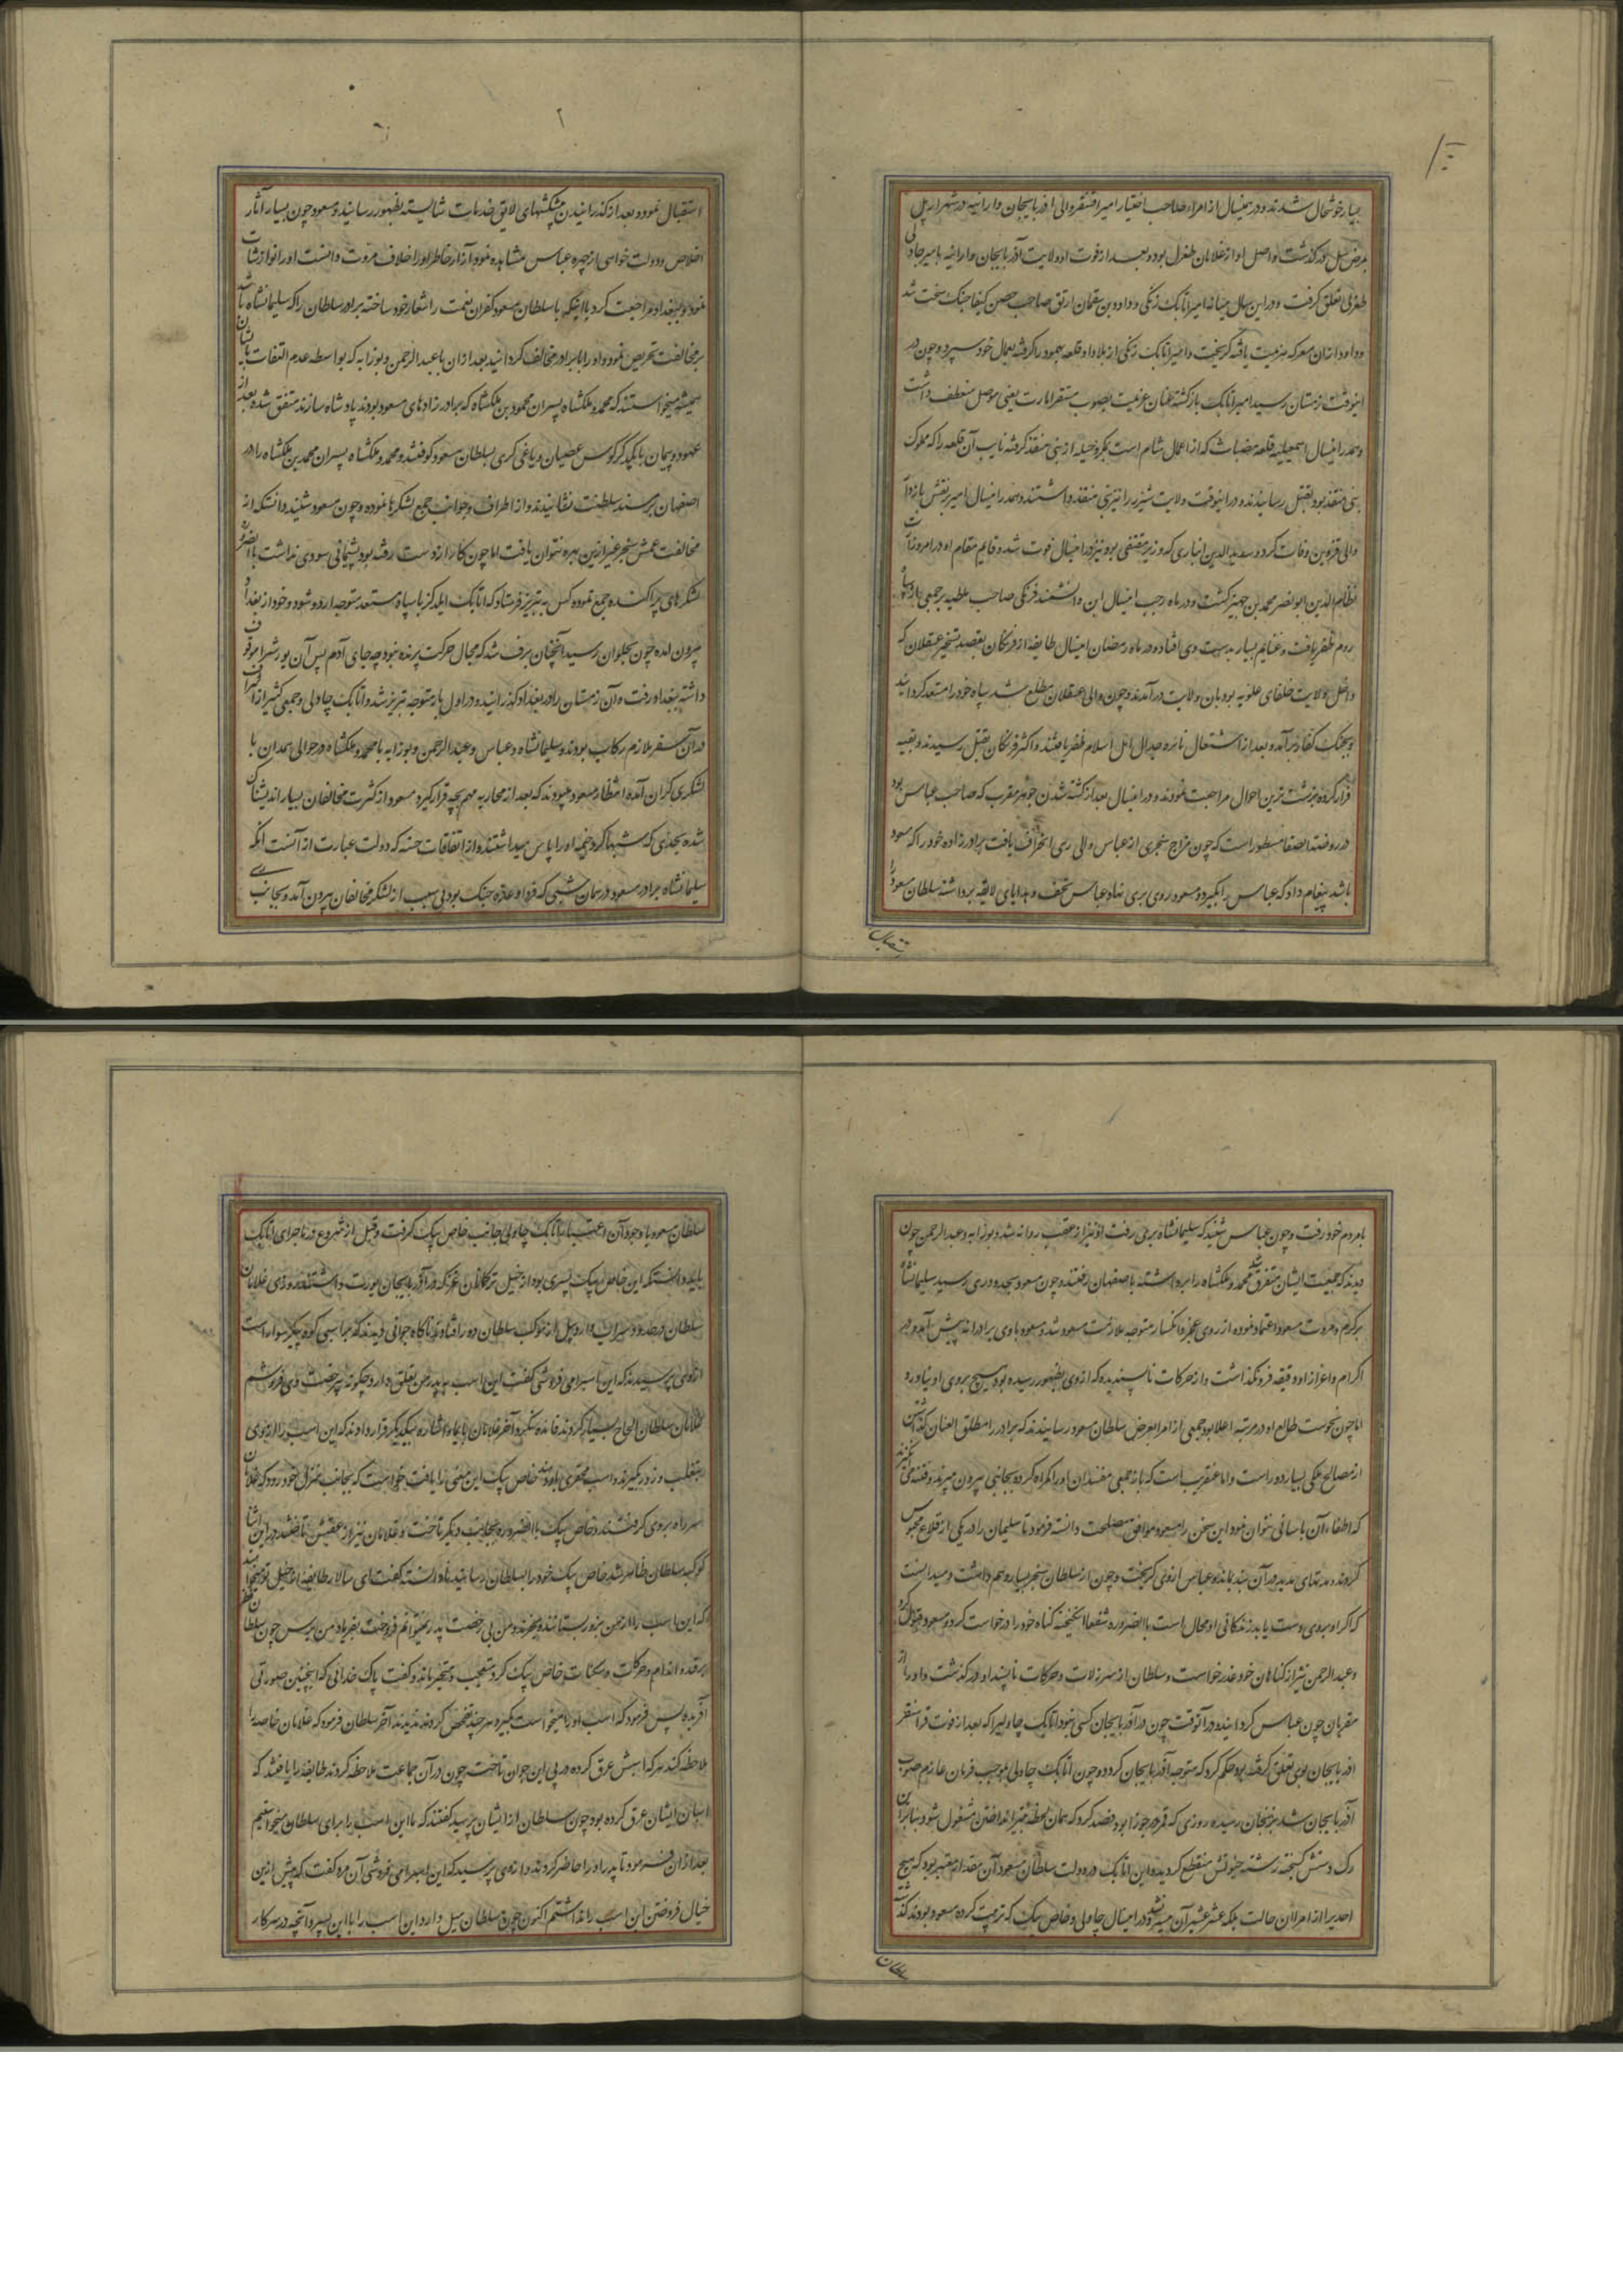 بسیار خوشحال شدند و در همینسال از امراء صاحب اختیار امیر اقسنقر والی اذربایجان و ارانیه در شهر اردبیل
بمرض سل درگذشت و اصل او از غلامان طغرل بود و بعد از فوت او ولایت آذربایجان و ارانیه بامیر جاولی
طغرلی تعلق گرفت و در این سال میانه امیر اتابک زنگی و داود بن سقمان ارتق صاحب حصن کیفا جنگ سخت شد
و داود ازان معرکه هزیمت یافته گریخت و امیر اتابک زنگی از بلاد او قلعه بهمود را گرفته بعمال خود سپرد و چون در
اینوقت زمستان رسید امیر اتابک بازگشته عنان عزیمت بصوب مستقر امارت یعنی موصل منعطف داشت
و همدرانیسال اسمعیلیه قلعه مصیاث که از اعمال شام است بمکر و حیله از بنی منقذ گرفته نایب آن قلعه را که مملوک
بنی منقذ بود بقتل رسانیدند و در اینوقت ولایت شیزر را نیز بنی منقذ داشتند و همدرانیسال امیر بقش بازدار
والی قزوین وفات کرد و سدیدالدین انباری که وزیر مقتفی بود نیز در اینسال فوت شد و قایم مقام او در امر وزارت
نظام الدین ابو نصر محمد بن جهیر گشت و در ماه رجب اینسال ابن دانشمند فرنگی صاحب ملطیه بر جمعی از روسا
روم ظفر یافت و غنایم بسیار بدست وی افتاد و در ماه رمضان اینسال طایفه از فرنگان بقصد تسخیر عسقلان که
داخل ولایت خلفای علویه بود بان ولایت درآمدند و چون والی عسقلان مطلع شد سپاه خود را مستعد گردانید
و بجنگ کفار برآمد و بعد از اشتعال نائره جدال اهل اسلام ظفر یافتند و اکثر فرنگان بقتل رسیدند و بقیه
فرار کرده بزشت ترین احوال مراجعت نمودند و در اینسال بعد از کشته شدن جوهر مقرب که صاحب عباس بود
در روضة الصفا مسطور است که چون مزاج سنجری از عباس والی ری انحراف یافت برادر زاده خود را که مسعود
باشد پیغام داد که عباس را بگیرد و مسعود روی بری نهاد عباس تحف و هدایای لایقه برداشته سلطان مسعود را
استقبال
استقبال نمود و بعد از گذرانیدن پیشکشهای لایق خدمات شایسته بظهور رسانید و مسعود چون بسیار آثار
اخلاص و دولت خواهی از چهره عباس مشاهده نمود آزار خاطر او را خلاف مروت دانست او را نوازشات
نمود و ببغداد مراجعت کرد با اینکه با سلطان مسعود کفران نعمت را شعار خود ساخته برادر سلطان را که سلیمانشاه باشد
بر مخالفت تحریص نمود و او را با برادر مخالف گردانید بعد ازان با عبدالرحمن و بوزابه که بواسطه عدم التفات بایشان
همیشه میخواستند که محمد و ملکشاه پسران محمود بن ملکشاه که برادر زادهای مسعود بودند پادشاه سازند متفق شده بعد از
عهود و پیمان بایکدیگر کوس عصیان و یاغی گری بسلطان مسعود کوفتند و محمد و ملکشاه پسران محمد بن ملکشاه را در
اصفهان بر مسند سلطنت نشانیدند و از اطراف و جوانب جمع لشکرها نموده و چون مسعود شنید دانست که از
مخالفت عمش سنجر غیر ازین بهره نتوان یافت اما چون کار از دست رفته بود پشیمانی سودی نداشت بالضرور
لشکرهای پراکنده جمع نموده کس به تبریز فرستاد که اتابک ایلدکز با سپاه مستعد متوجه اردو شود و خود از بغداد
بیرون آمده چون بحلوان رسید آنچنان برف شد که مجال حرکت پرنده نبود چه جای آدم پس آن یورش را موقوف
داشته ببغداد رفت و آن زمستان را در بغداد گذرانید و در اول بهار متوجه تبریز شد و اتابک چاولی و جمعی کثیر از امرا
در آن سفر ملازم رکاب بودند و سلیمانشاه و عباس و عبدالرحمن و بوزابه با محمد و ملکشاه در حوالی همدان با
لشکری گران آمده انتظار مسعود میبردند که بعد از محاربه مهم بچه قرار گیرد مسعود از کثرت مخالفان بسیار اندیشناک
شده بحدی که شبها گرد خیمه او را پاس میداشتند و از اتفاقات حسنه که دولت عبارت از آنست آنکه
سلیمانشاه برادر مسعود در همان شبی که فردا وعده جنگ بود بی سبب از لشکر مخالفان بیرون آمد و بجانب ری
با مردم خود رفت و چون عباس شنید که سلیمانشاه بری رفت او نیز از عقب روانه شد و بوزابه و عبدالرحمن چون
دیدند که جمعیت ایشان متفرق شد محمد و ملکشاه را برداشته باصفهان رفتند و چون مسعود بحدود ری رسید سلیمانشاه
بر کرم و مروت مسعود اعتماد نموده از روی عجز و انکسار متوجه ملازمت مسعود شد و مسعود با وی برادرانه پیش آمد و در
اکرام و اعزاز او دقیقه فرو نگذاشت و از حرکات ناپسندیده که از وی بظهور رسیده بود هیچ بروی او نیاورد
اما چون نحوست طالع او در مرتبه اعلا بود جمعی از امرا بعرض سلطان مسعود رسانیدند که برادر را مطلق العنان گذاشتن
از مصالح ملکی بسیار دور است و اما عنقریب است که باز جمعی مفسدان او را گمراه کرده بجانبی بیرون میبرند و فتنه می انگیزند
که اطفاء آن باسانی نتوان نمود این سخن را مسعود موافق مصلحت دانسته فرمود تا سلیمان را در یکی از قلاع محبوس
کردند و مدتهای مدید در آن بند بماند و عباس از وی گریخت و چون از سلطان سنجر بسیار وهم داشت و میدانست
که اگر او بروی دست یابد زندگانی او محال است بالضروره شفعا انگیخته گناه خود را درخواست کرد و مسعود قبول کرد
و عبدالرحمن نیز از گناهان خود عذر خواست و سلطان از سر زلات و حرکات ناپسند او درگذشت و او را از
مقربان چون عباس گردانید و در آنوقت چون در آذربایجان کسی نبود اتابک چاولی را که بعد از فوت قراسنقر
اذربایجان بوی تعلق گرفته بود حکم کرد که متوجه آذربایجان گردد و چون اتابک چاولی بموجب فرمان عازم صوب
آذربایجان شد بزنجان رسیده روزی که قمر در جوزا بود فصد کرد که همان لحظه بتیر انداختن مشغول شود بنابران
رک دستش گسیخته رشته حیوتش منقطع گردید و این اتابک در دولت سلطان مسعود آن مقدار معتبر بود که هیچ
احدیرا از امرا ان حالت بلکه عشر عشیر آن میسر نشد و در اینسال چاولی و خاص بیک که تربیت کرده مسعود بودند گذشته
سلطان
سلطان مسعود با وجود آن اعتبار اتابک چاولی جانب خاص بیک گرفت و قبل از شروع در ماجرای اتابک
باید دانست که این خاص بیک پسری بود از خیل ترکمانان باغز که در آذربایجان یورت داشتند و روزی غلامان
سلطان در حدود سراب و اردبیل از موکب سلطان دور افتادند ناگاه جوانی دیدند که بر اسبی کوه پیکر سوار است
از وی پرسیدند که این اسب را میفروشی گفت این اسب به پدر من تعلق دارد چگونه بیرخصت وی فروشم
غلامان سلطان الحاح بسیار کردند فائده نکرد آخر غلامان بایما و اشاره بیکدیگر قرار دادند که این اسب را از وی
بتغلب و زور بگیرند و اسب محقری باو دهند خاص بیک این معنی را یافت خواست که بجانب منزل خود رود که غلامان
سر راه بروی گرفتند و خاص بیک بالضروره بجانب دیگر تاخت و غلامان نیز از عقبش تاختند در این اثنا
کوکبه سلطان ظاهر شد خاص بیک خود را بسلطان رسانید و نادانسته گفت ای سالار طایفه از خیل تو میخواهند
که این اسب را از من بزور بستانند و میخرند و من بی رخصت پدر نمیتوانم فروخت بفریاد من برس چون سلطان را نظر
بر قد و اندام و حرکات و سکنات خاص بیک کرد متعجب و متحیر بماند و گفت پاک خدائی که اینچنین صورتی
آفریده پس فرمود که اسب او را میخواست بگیرد هر چند تفحص کردند ندیدند آخر سلطان فرمود که غلامان خاصه را
ملاحظه کنند هر که اسبش عرق کرده در پی این جوان تاخته چون در آن جماعت ملاحظه کردند طایفه را یافتند که
اسبان ایشان عرق کرده بود چون سلطان از ایشان پرسید گفتند که ما این اسب را برای سلطان میخواستیم
بعد ازان فرمود تا پدر او را حاضر کردند و از وی پرسید که این اسب را میفروشی آن مرد گفت که پیش ازین
خیال فروختن این اسب را نداشتم اکنون چون سلطان میل دارد این اسب را با این پسر و آنچه در سرکار